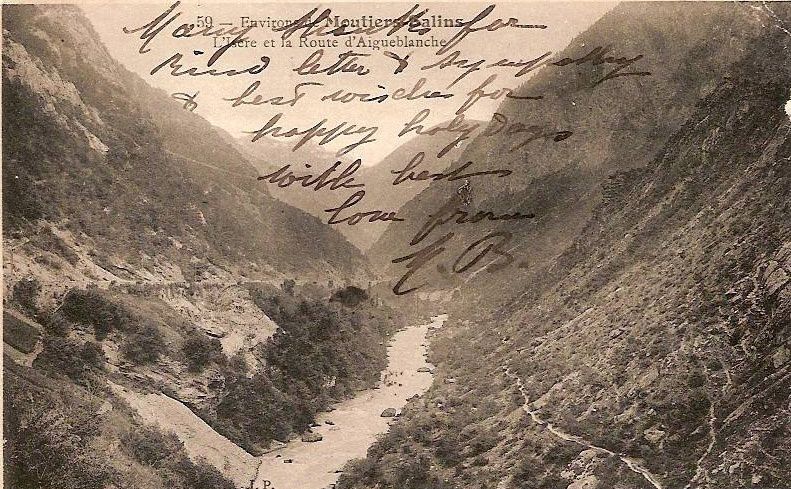 59 — Environs de Moutiers-Salins
L'Isère et la Route d'Aigueblanche
Many thanks for
kind letter & sympathy
& best wishes for
happy holydays
with best
love from
M. B.
J. P.